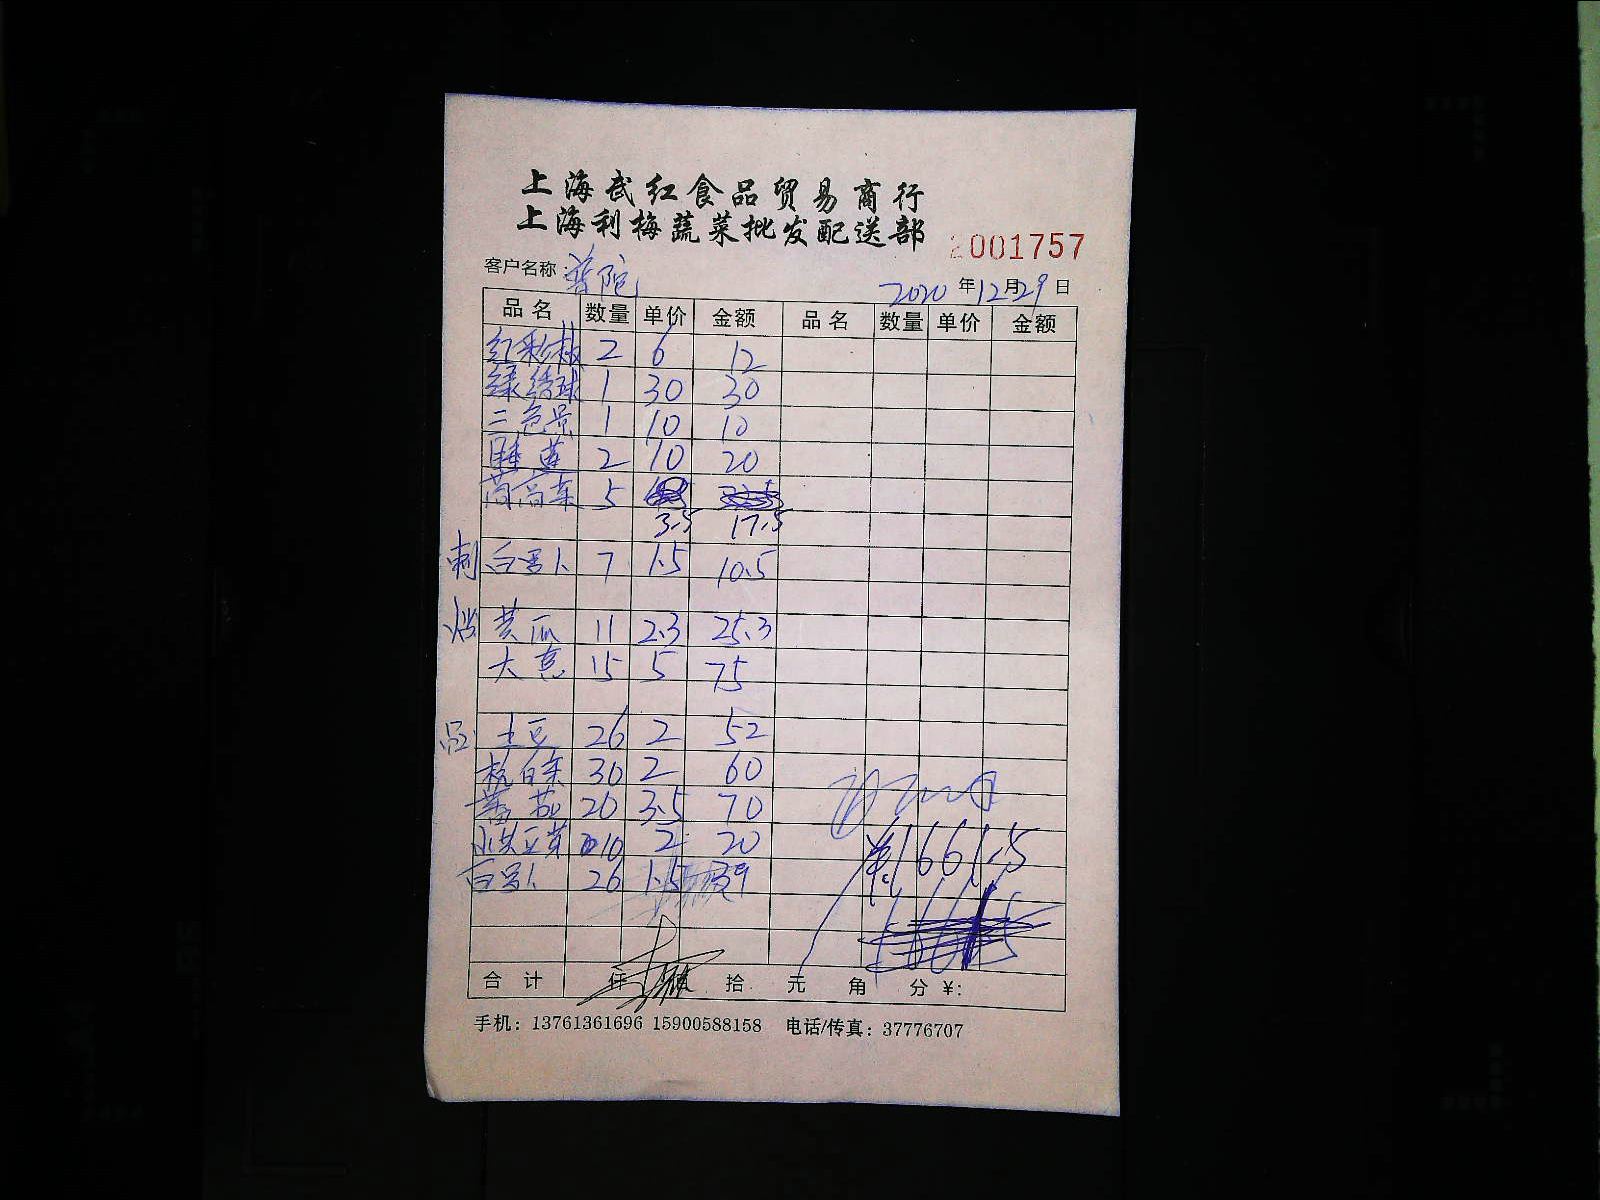 上海武红食品贸易商行
上海利梅蔬菜批发配送部
2001757
客户名称：普陀
2020年12月29日
品名 数量 单价 金额 品名 数量 单价 金额
红彩椒 2 6 12
绿绣球 1 30 30
三色堇 1 10 10
睡莲 2 10 20
茼蒿菜 5
3.5 17.5
刺 白萝卜 7 1.5 10.5
身 黄瓜 11 2.3 25.3
大葱 15 5 75
品 土豆 26 2 52
杭白菜 30 2 60
蕃茄 20 3.5 70
小黄豆芽 10 2 20
白萝卜 26 1.5 39
¥1661.5
合计 仟 佰 拾 元 角 分 ¥:
手机：13761361696 15900588158 电话/传真：37776707